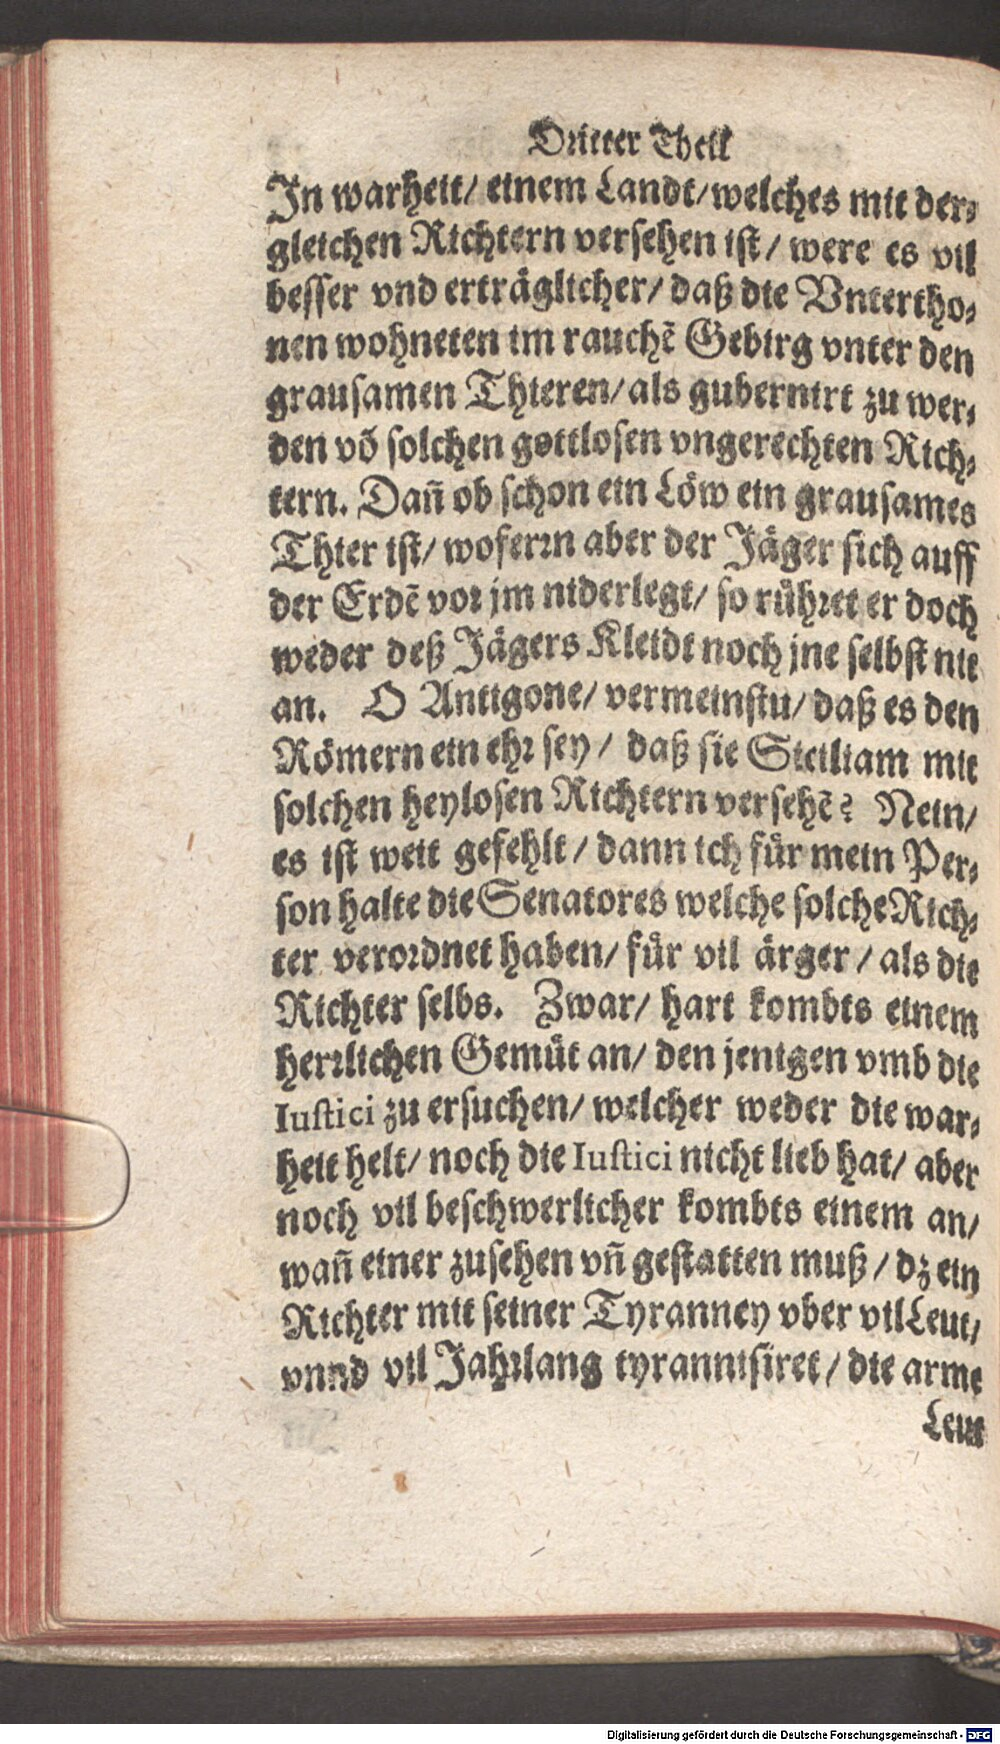 Dritter Theil
In warheit/ einem Landt/ welches mit der⸗
gleichen Richtern versehen ist/ were es vil
besser vnd erträglicher/ daß die Vntertho⸗
nen wohneten im rauchē Gebirg vnter den
grausamen Thieren/ als gubernirt zu wer⸗
den vō solchen gottlosen vngerechten Rich⸗
tern. Dañ ob schon ein Löw ein grausames
Thier ist/ woferrn aber der Jäger sich auff
der Erdē vor jm niderlegt/ so rühret er doch
weder deß Jägers Kleidt noch jne selbst nie
an. O Antigone/ vermeinstu/ daß es den
Römern ein ehr sey/ daß sie Siciliam mit
solchen heylosen Richtern versehē? Nein/
es ist weit gefehlt/ dann ich für mein Per⸗
son halte die Senatores welche solche Rich⸗
ter verordnet haben/ für vil ärger/ als die
Richter selbs. Zwar/ hart kombts einem
herrlichen Gemüt an/ den jenigen vmb die
Iustici zu ersuchen/ welcher weder die war⸗
heit helt/ noch die Iustici nicht lieb hat/ aber
noch vil beschwerlicher kombts einem an/
wañ einer zusehen vñ gestatten muß/ dz ein
Richter mit seiner Tyranney vber vil Leut/
vnnd vil Jahrlang tyrannisiret/ die arme
Leut
Digitalisierung gefördert durch die Deutsche Forschungsgemeinschaft - DFG